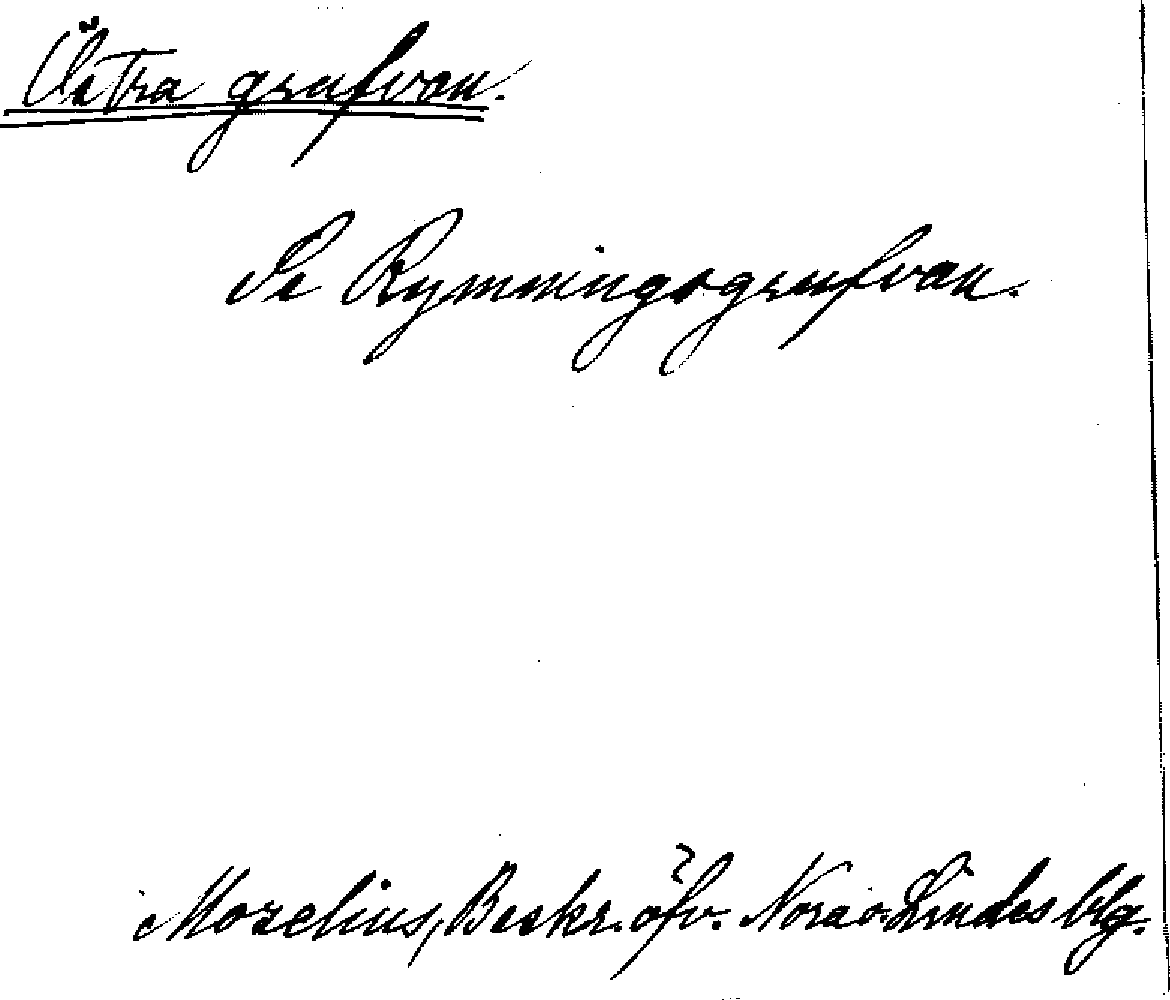 Östra grufvan.
Se Rymningsgrufvan.
Mozelius, Beskr. öfv. Nora o. Lindes blg.